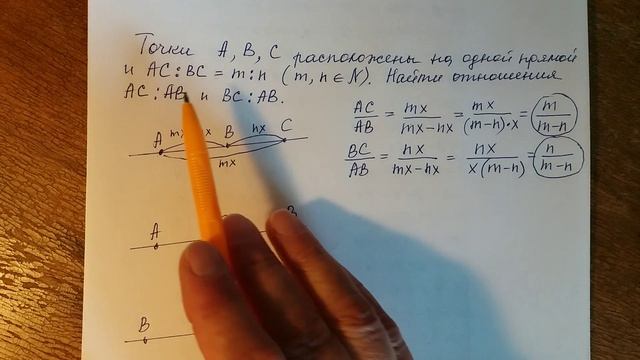 Точки A, B, C расположены на одной прямой
и AC:BC = m:n (m, n ∈ N). Найти отношения
AC:AB и BC:AB.
AC/AB = mx/(mx-nx) = mx/((m-n)·x) = m/(m-n)
BC/AB = nx/(mx-nx) = nx/(x(m-n)) = n/(m-n)
A B nx C
mx
A B
B